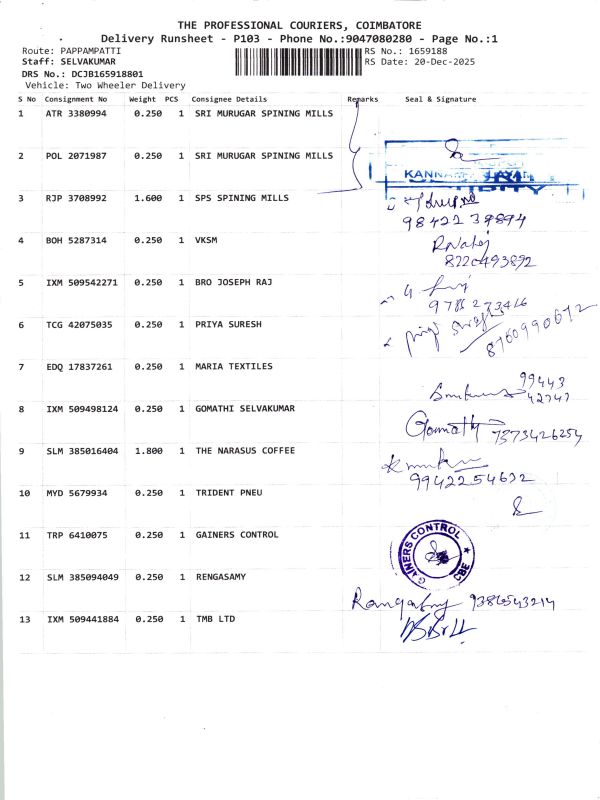 THE PROFESSIONAL COURIERS, COIMBATORE
Delivery Runsheet - P103 - Phone No.:9047080280 - Page No.:1
Route: PAPPAMPATTI RS No.: 1659188
Staff: SELVAKUMAR RS Date: 20-Dec-2025
DRS No.: DCJB165918801
Vehicle: Two Wheeler Delivery
S No Consignment No Weight PCS Consignee Details Remarks Seal & Signature
1 ATR 3380994 0.250 1 SRI MURUGAR SPINING MILLS
2 POL 2071987 0.250 1 SRI MURUGAR SPINING MILLS
3 RJP 3708992 1.600 1 SPS SPINING MILLS
98422 39894
4 BOH 5287314 0.250 1 VKSM
8220493892
5 IXM 509542271 0.250 1 BRO JOSEPH RAJ
6 TCG 42075035 0.250 1 PRIYA SURESH
8760990672
7 EDQ 17837261 0.250 1 MARIA TEXTILES
99443
42747
8 IXM 509498124 0.250 1 GOMATHI SELVAKUMAR
Gomathi 7373426254
9 SLM 385016404 1.800 1 THE NARASUS COFFEE
9942254632
10 MYD 5679934 0.250 1 TRIDENT PNEU
11 TRP 6410075 0.250 1 GAINERS CONTROL
GAINERS CONTROL CBE
12 SLM 385094049 0.250 1 RENGASAMY
9386543214
13 IXM 509441884 0.250 1 TMB LTD